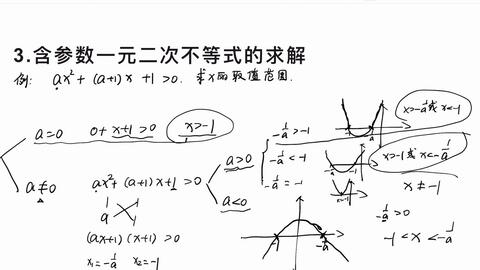 3.含参数一元二次不等式的求解
例: ax²+(a+1)x+1>0. 求x的取值范围.
a=0 0+x+1>0 x>-1
a≠0 ax²+(a+1)x+1>0
1 1
a 1
(ax+1)(x+1)>0
x₁=-1/a x₂=-1
a>0
-1/a>-1 x>-1/a或x<-1
-1/a<-1 x>-1或x<-1/a
-1/a=-1 x≠-1
a<0 -1/a>0
-1<x<-1/a
-1 -1/a